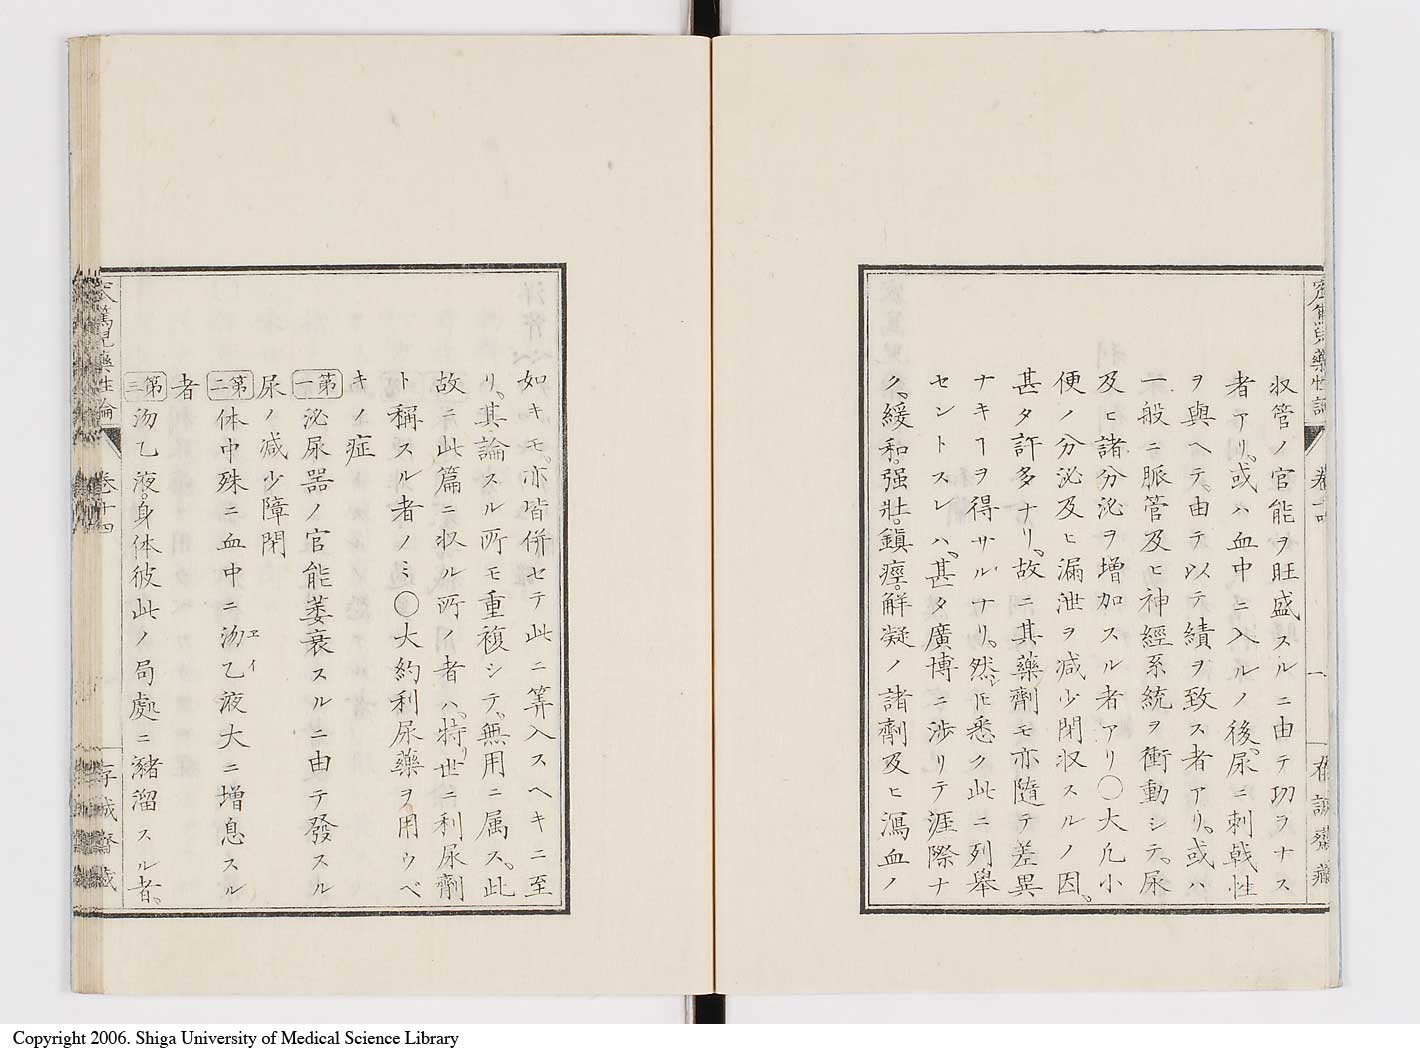 収管ノ官能ヲ旺盛スルニ由テ功ヲナス
者アリ、或ハ血中ニ入ルノ後、尿ニ刺戟性
ヲ與ヘテ由テ以テ績ヲ致ス者アリ、或ハ
一般ニ脈管及ヒ神經系統ヲ衝動シテ、尿
及ヒ諸分泌ヲ增加スル者アリ〇大凡小
便ノ分泌及ヒ漏泄ヲ減少閉収スルノ因、
甚タ許多ナリ、故ニ其藥劑モ亦隨テ差異
ナキヿヲ得サルナリ、然シ𪜈悉ク此ニ列舉
セントスレハ、甚タ廣博ニ涉リテ涯際ナ
ク、緩和。强壯。鎭痙。解凝ノ諸劑及ヒ瀉血ノ
卷十四
一
如キモ、亦皆併セテ此ニ算入スヘキニ至
リ、其論スル所モ重複シテ、無用ニ属ス、此
故ニ此篇ニ収ル所ノ者ハ、特リ世ニ利尿劑
ト稱スル者ノミ〇大約利尿藥ヲ用ウベ
キノ症
第一 泌尿器ノ官能萎衰スルニ由テ發スル
尿ノ減少障閉
第二 体中殊ニ血中ニ沕乙液大ニ增息スル
ヱイ
者
第三 沕乙液。身体彼此ノ局處ニ瀦溜スル者、
篤兒藥性論
卷十四